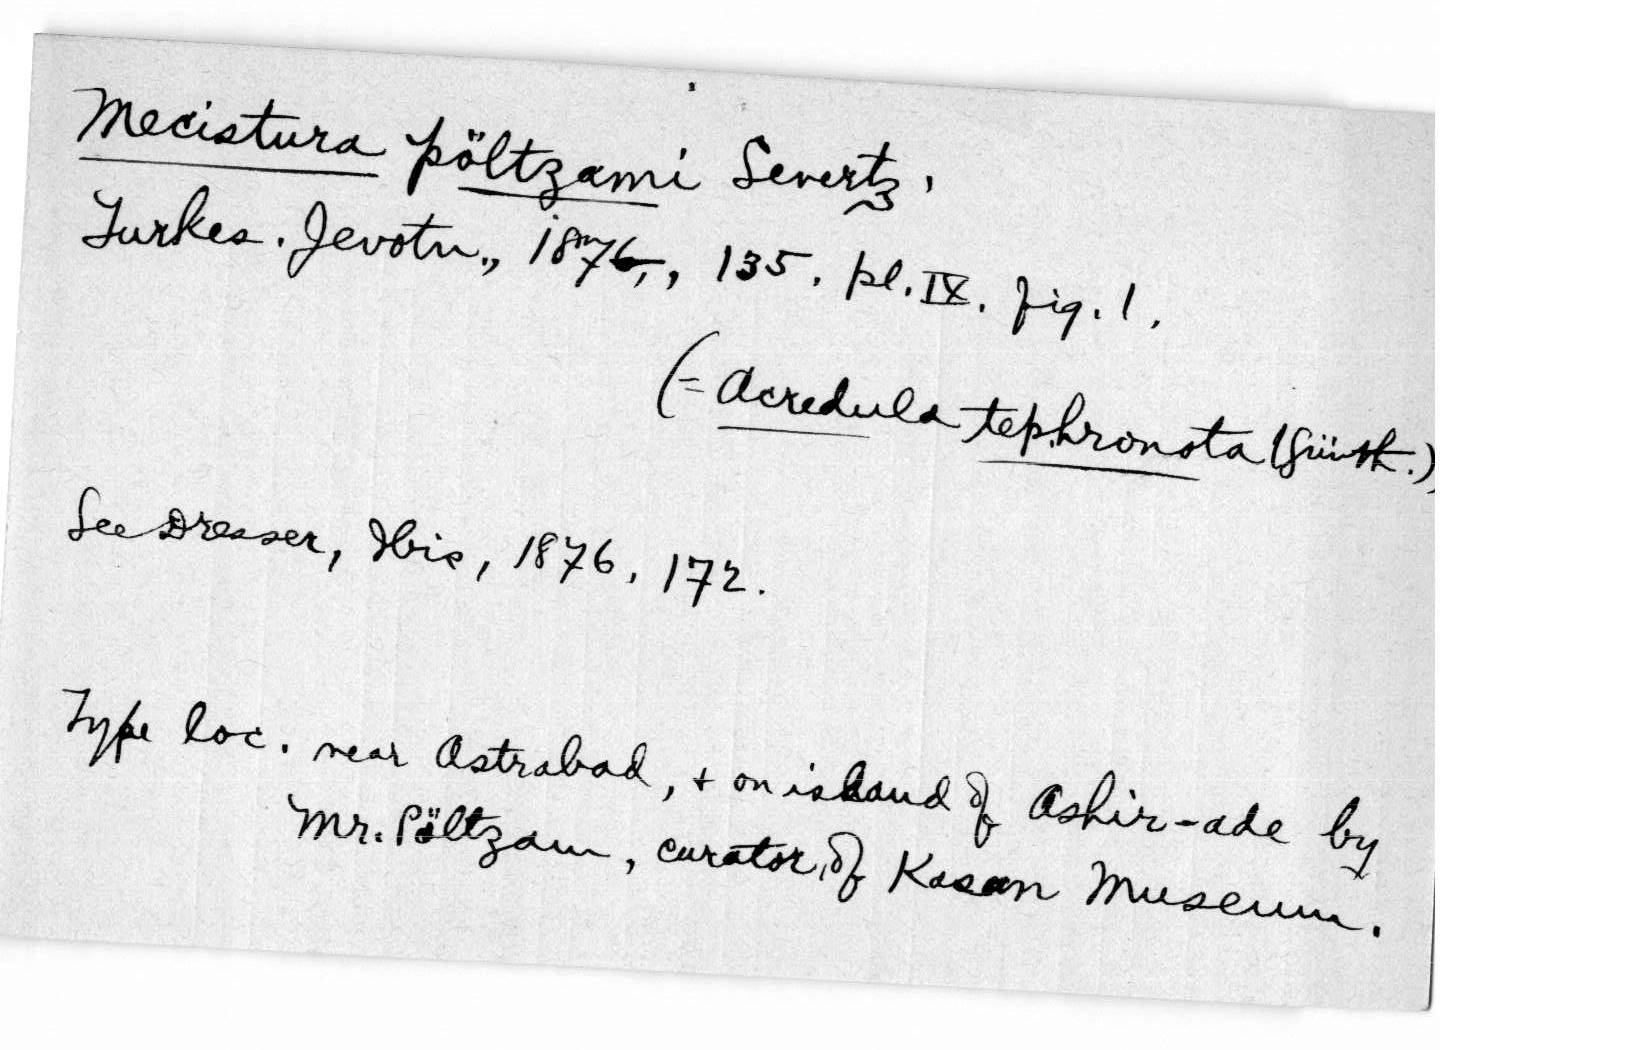 Mecistura pöltzami Severtz.
Turkes. Jevotn., 1876, 135. pl. IX. fig. 1.
(= Acredula tephronota (Günth.)
See Dresser, Ibis, 1876, 172.
Type loc. near Astrabad, + on island of Ashir-ade by
Mr. Pöltzam, curator, of Kasan Museum.